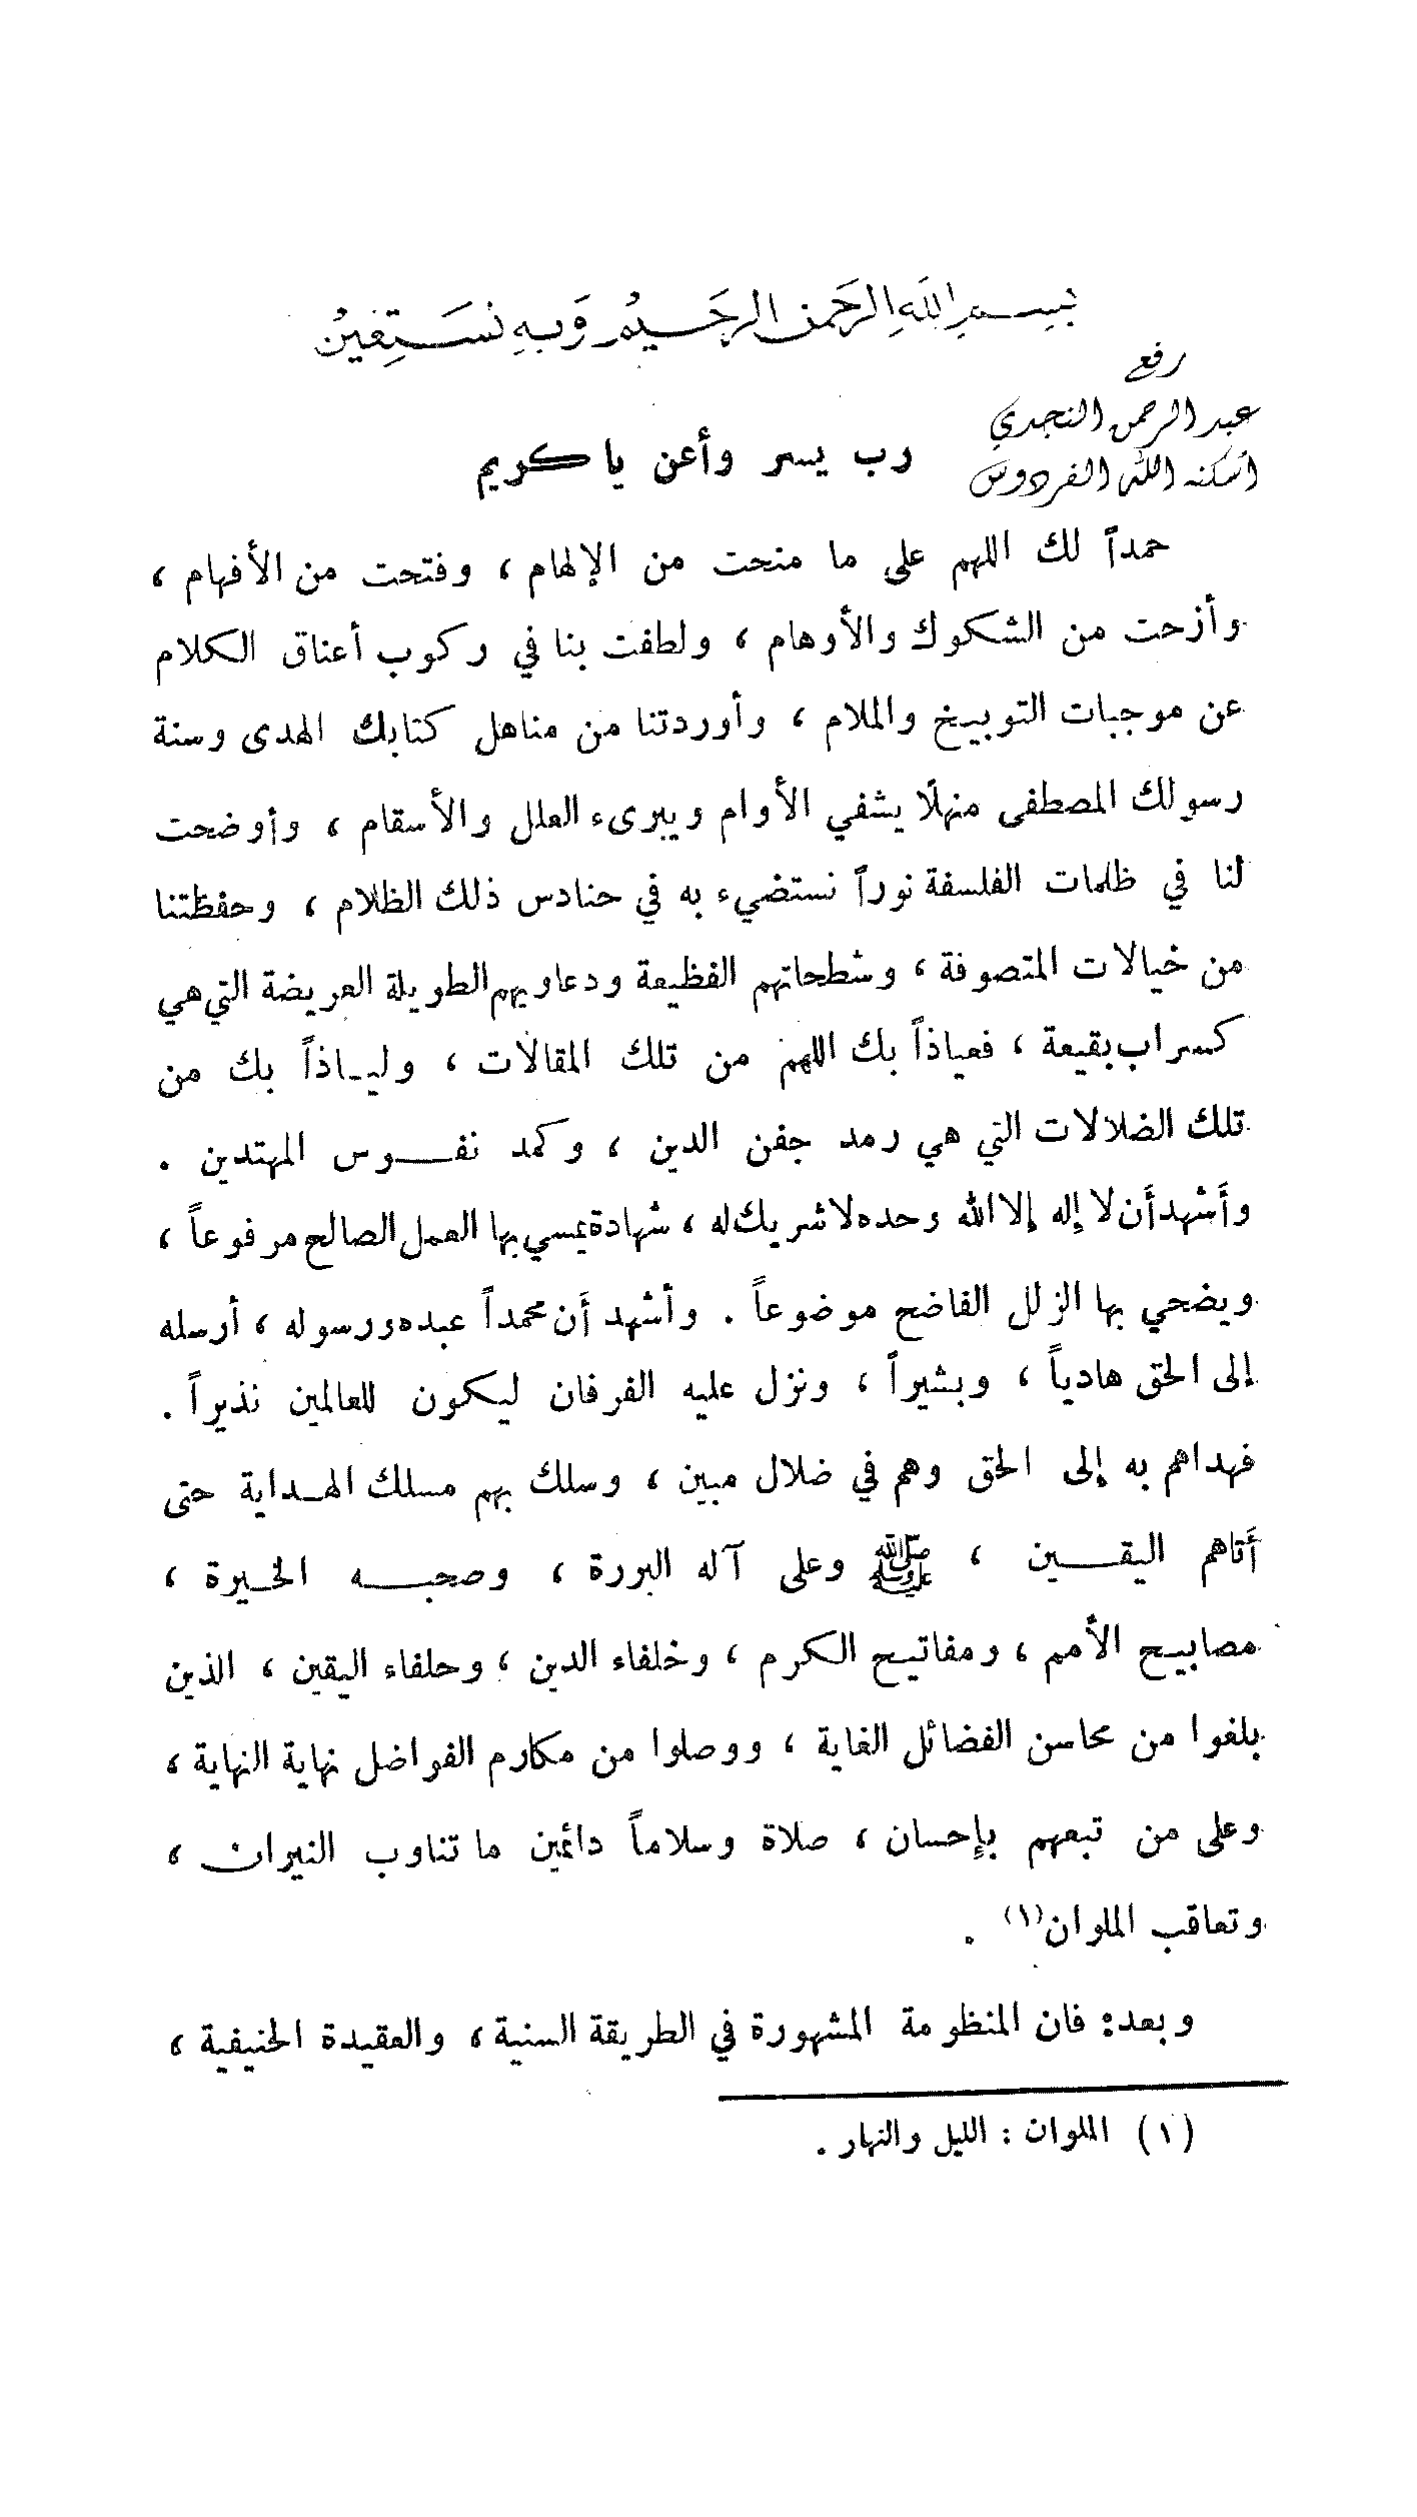 بِسمِ اللهِ الرحَمن الرحَـيمُ وَبهِ نسـتَعِينُ
رفع
عبد الرحمن النجدي
أسكنه الله الفردوس
رب يسر وأعن يا كريم
حمداً لك اللهم على ما منحت من الإلهام ، وفتحت من الأفهام ،
وأزحت من الشكوك والأوهام ، ولطفت بنا في ركوب أعناق الكلام
عن موجبات التوبيخ والملام ، وأوردتنا من مناهل كتابك الهدى وسنة
رسولك المصطفى منهلًا يشفي الأوام ويبرىء العلل والأسقام ، وأوضحت
لنا في ظلمات الفلسفة نوراً نستضيء به في حنادس ذلك الظلام ، وحفظتنا
من خيالات المتصوفة ، وشطحاتهم الفظيعة ودعاويهم الطويلة العريضة التي هي
كسراب بقيعة ، فعياذاً بك اللهم من تلك المقالات ، وليـاذاً بك من
تلك الضلالات التي هي رمد جفن الدين ، وكمد نفـــوس المهتدين .
وأَشهد أَن لا إله إلا الله وحده لا شريك له ، شهادة يمسي بها العمل الصالح مرفوعاً ،
ويضحي بها الزلل الفاضح موضوعاً . وأشهد أَن محمداً عبده ورسوله ، أرسله
إلى الحق هادياً ، وبشيراً ، ونزل عليه الفرقان ليكون للعالمين نذيراً .
فهداهم به إلى الحق وهم في ضلال مبين ، وسلك بهم مسلك الهـداية حتى
أَتاهم اليقـــين ، ﷺ وعلى آله البررة ، وصحبـــه الخـيرة ،
مصابيح الأمم ، ومفاتيح الكرم ، وخلفاء الدين ، وحلفاء اليقين ، الذين
بلغوا من محاسن الفضائل الغاية ، ووصلوا من مكارم الفواضل نهاية النهاية ،
وعلى من تبعهم بإحسان ، صلاة وسلاماً دائمين ما تناوب النيران ،
وتعاقب الملوان(١) .
وبعد: فان المنظومة المشهورة في الطريقة السنية ، والعقيدة الحنيفية ،
(١) الملوان : الليل والنهار .